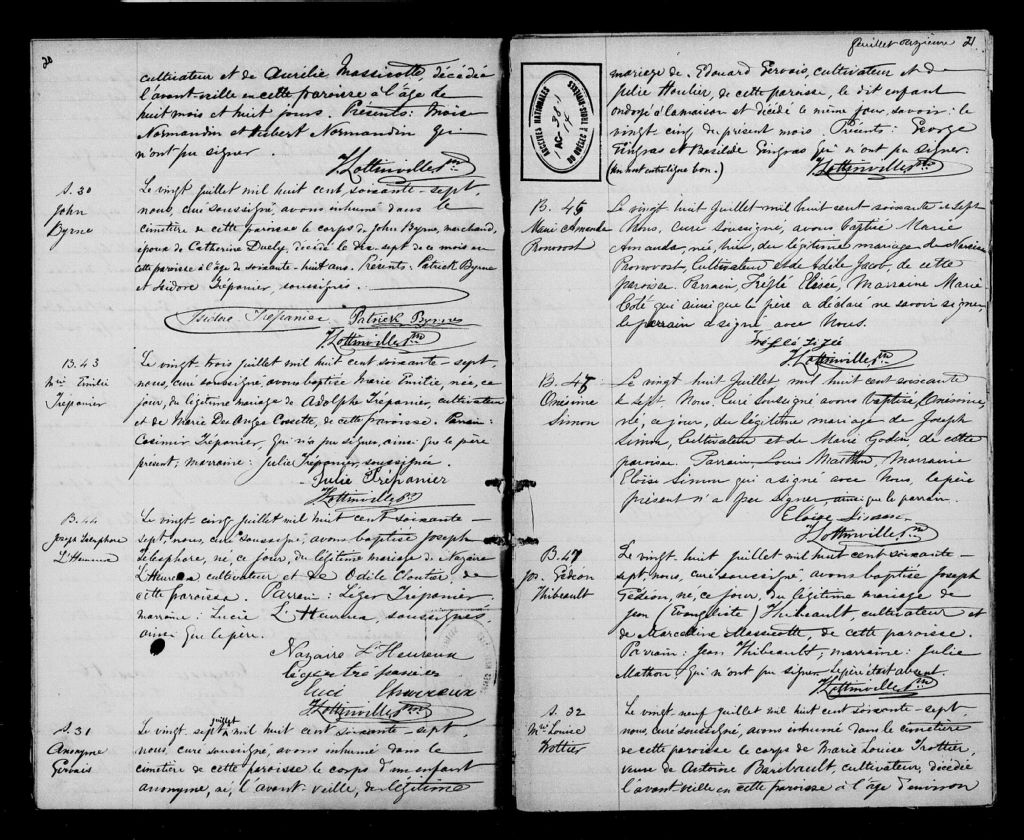 20
cultivateur et de Aurélie Massicotte, décédé
l'avant-veille en cette paroisse à l'âge de
huit mois et huit jours. Présents: Moïse
Normandin et Hubert Normandin qui
n'ont pu signer.
J. Lottinville ptre
S. 30
John
Byrne
Le vingt juillet mil huit cent, soixante-sept,
nous, curé soussigné, avons inhumé dans le
cimetière de cette paroisse le corps de John Byrne, marchand,
époux de Catherine décédé le dix-sept de ce mois en
cette paroisse à l'âge de soixante-huit ans. Présents: Patrick Byrne
et Isidore Trépanier, soussignés.
Isidore Trépanier Patrick Byrnes
J. Lottinville ptre
B. 43
Mie Emilie
Trépanier
Le vingt-trois juillet mil huit cent soixante-sept,
nous, curé soussigné, avons baptisé Marie Emilie, née, ce
jour, du légitime mariage de Adolphe Trépanier, cultivateur
et de Marie Des Anges Cossette, de cette paroisse. Parrain:
Casimir Trépanier, qui n'a pu signer, ainsi que le père
présent; marraine: Julie Trépanier, soussignée.
Julie Trépanier
J. Lottinville ptre
B. 44
Joseph Télesphore
L'Heureux
Le vingt-cinq juillet mil huit cent soixante-
sept, nous, curé soussigné, avons baptisé Joseph
Télesphore, né, ce jour, du légitime mariage de Nazaire
L'Heureux cultivateur et de Odile Cloutier, de
cette paroisse. Parrain: Léger Trépanier,
marraine: Lucie L'Heureux, soussignés,
ainsi que le père.
Nazaire L'Heureux
Luci
J. Lottinville ptre
S. 31
Anonyme
Gervais
Le vingt-sept juillet mil huit cent soixante-sept,
nous, curé soussigné, avons inhumé dans le
cimetière de cette paroisse le corps d'un enfant
anonyme, né, l'avant-veille, du légitime
feuillet onzième 21
ARCHIVES NATIONALES
DU QUÉBEC À TROIS-RIVIÈRES
mariage de Edouard Gervais, cultivateur et de
Julie Houlier, de cette paroisse, le dit enfant
ondoyé à la maison et décédé le même jour, savoir: le
vingt cinq du présent mois. Présents: George
Gingras et Basilde Gingras qui n'ont pu signer.
(Un mot entreligne bon.) J. Lottinville ptre
B. 45
Marie Amanda
Pronovost
Le vingt-huit Juillet mil huit cent soixante et sept
Nous, Curé soussigné, avons baptisé Marie
Amanda, née, hier, du légitime mariage de Narcisse
Pronovost, Cultivateur et de Adèle Jacob, de cette
paroisse. Parrain, Trefflé Marraine Marie
Coté qui ainsi que le père a déclaré ne savoir signer,
le parrain a signé avec Nous.
J. Lottinville ptre
B. 46
Onésime
Simon
Le vingt huit Juillet, mil huit cent soixante
et sept, Nous, Curé soussigné avons baptisé Onésime,
né, ce jour, du légitime mariage de Joseph
Simon, Cultivateur et de Marie Godin, de cette
paroisse. Parrain, Louis Marraine
Eloïse Simon qui a signé avec Nous, le père
présent n'a pu signer, ainsi que le parrain.
Eloise
J. Lottinville ptre
B. 47
Jos. Gédéon
Thibeault
Le vingt-huit juillet mil huit cent soixante-
sept, nous, curé soussigné, avons baptisé Joseph
Gédéon, né, ce jour, du légitime mariage de
Jean (Evangéliste) Thibeault, cultivateur et
de Marceline Massicotte, de cette paroisse.
Parrain: Jean Thibeault; marraine: Julie
Mathon qui n'ont pu signer. Le père était absent.
J. Lottinville ptre
S. 32
Mie Louise
Trottier
Le vingt-neuf juillet mil huit cent soixante-sept,
nous, curé soussigné, avons inhumé dans le cimetière
de cette paroisse le corps de Marie Louise Trottier,
veuve de Antoine Baribeault, cultivateur, décédée
l'avant-veille en cette paroisse à l'âge d'environ